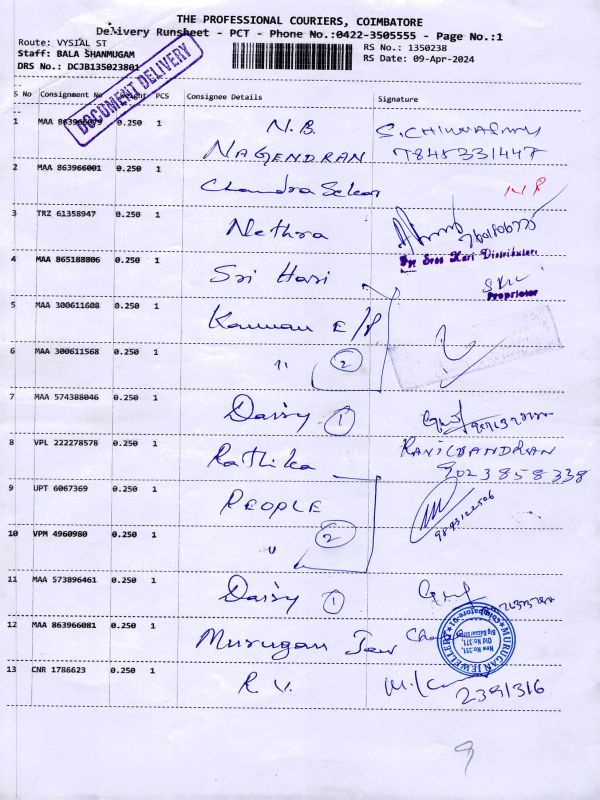 THE PROFESSIONAL COURIERS, COIMBATORE
Delivery Runsheet - PCT - Phone No.:0422-3505555 - Page No.:1
Route: VYSIAL ST
RS No.: 1350238
Staff: BALA SHANMUGAM
RS Date: 09-Apr-2024
DRS No.: DCJB135023801
DOCUMENT DELIVERY
S No Consignment No Weight PCS Consignee Details Signature
1 MAA 0.250 1 N.B.
NAGENDRAN 7845331447
2 MAA 863966001 0.250 1 Chandra Sekar
3 TRZ 61358947 0.250 1 Nethra
For Sree Hari Distributors
4 MAA 865188806 0.250 1 Sri Hari
Proprietor
5 MAA 300611608 0.250 1 Kannan E/P
6 MAA 300611568 0.250 1 " 2
7 MAA 574388046 0.250 1 Daisy 1
8 VPL 222278578 0.250 1 Rathika RAVICHANDRAN
9023858338
9 UPT 6067369 0.250 1 PEOPLE
9843122506
10 VPM 4960980 0.250 1 " 2
11 MAA 573896461 0.250 1 Daisy 1
12 MAA 863966081 0.250 1 Murugan Jew
MURUGAN JEWELLERY
New No.351,
Old No.371,
Coimbatore-01
13 CNR 1786623 0.250 1 R.V.
2391316
9